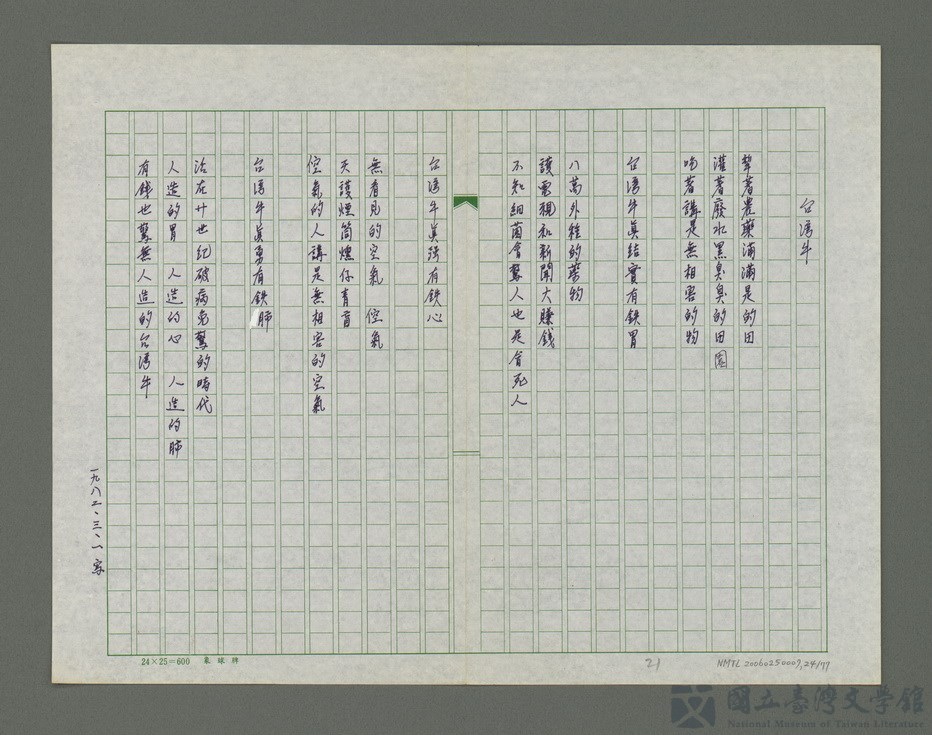 台湾牛
犂著農藥滿滿是的田
灌著廢水黑臭臭的田園
吻著講是無相害的物
台湾牛眞結實有鉄胃
八萬外種的藥物
護電視和新聞大賺錢
不知細菌會驚人也是會死人
台湾牛眞强有鉄心
無看見的空氣 倥氣
天護煙筒燻仔青盲
倥氣的人講是無相害的空氣
台湾牛眞勇有鉄肺
活在廿世紀破病免驚的時代
人造的胃 人造的心 人造的肺
有錢也驚無人造的台湾牛
一九八二、三、一 家
24×25=600 象球牌
21
NMTL 20060250009,24/77
國立臺灣文學館
National Museum of Taiwan Literature